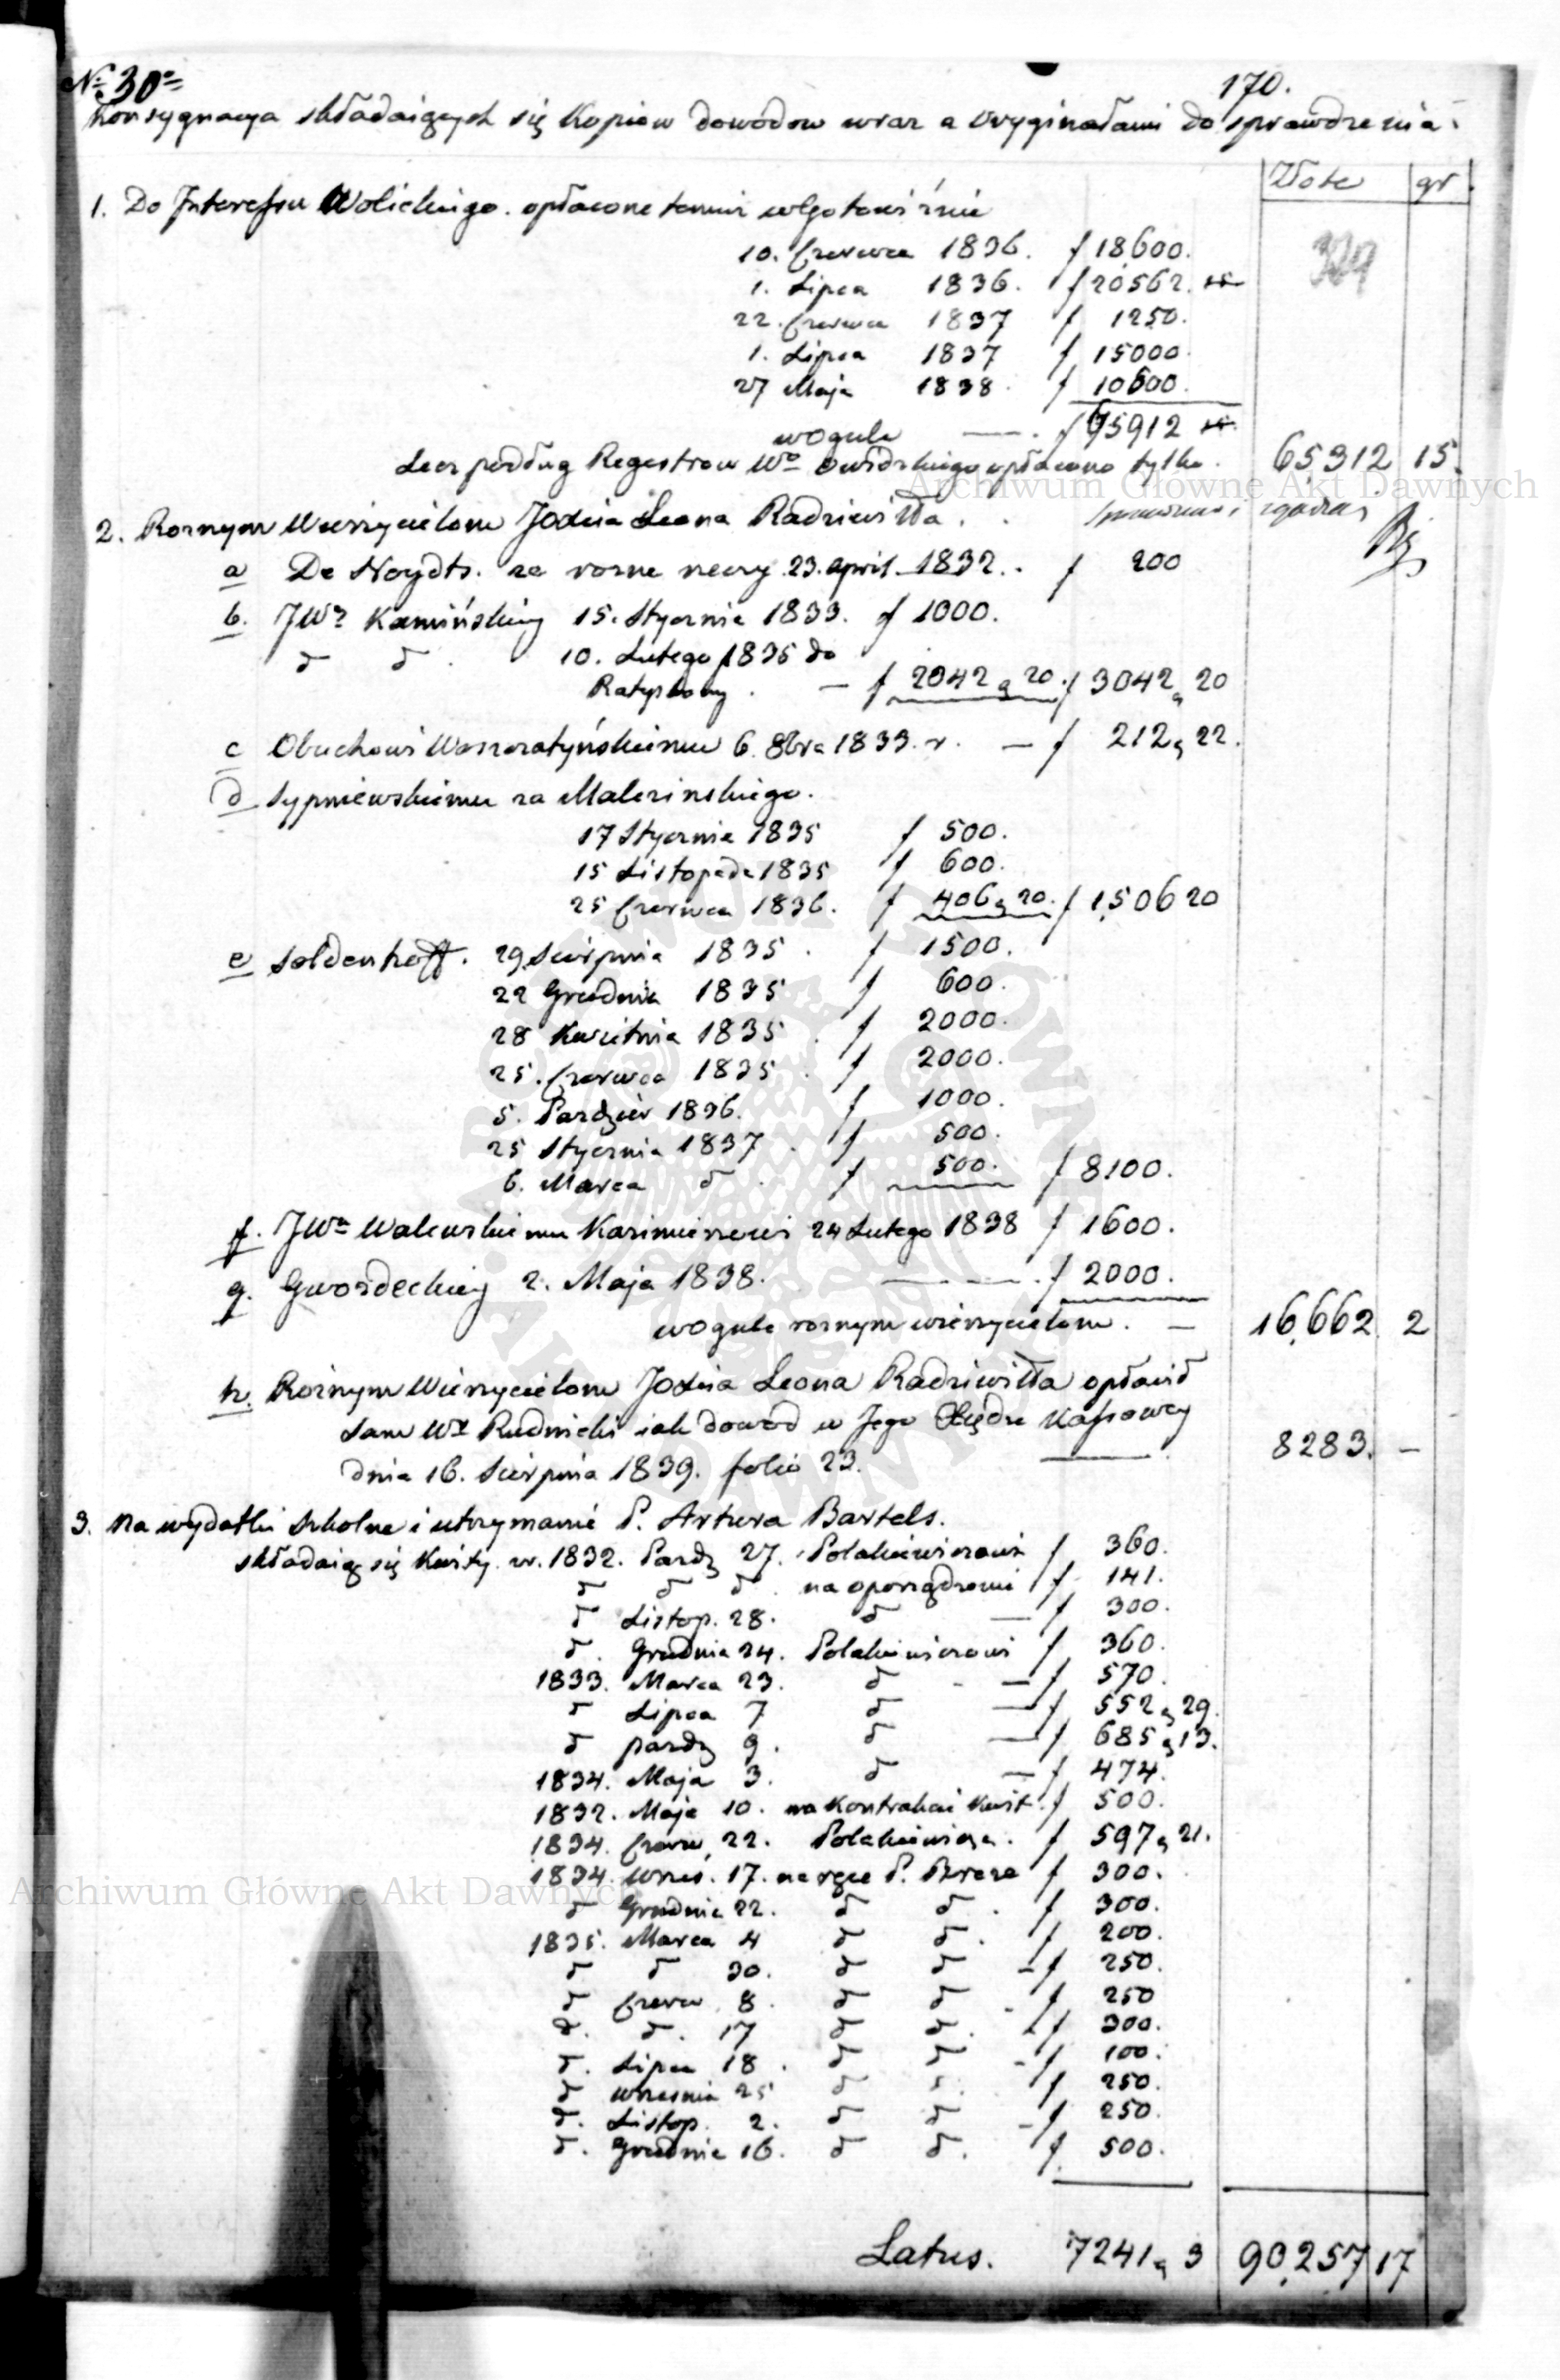 No 30o
170.
Konsygnacya składaiących się Kopiow dowodow wraz z oryginałami do sprawdzenia.
Złote gr
1. Do Interessu Wolickiego opłacone temuż w Gotowiźnie
10. Czerwca 1836. f 18600.
1. Lipca 1836. f 20562. 15
22. Czerwca 1837 f 1250.
1. Lipca 1837 f 15000.
27 Maja 1838. f 10500.
wogule — f 65912 15.
Lecz podług Regestrow Wo Owidzkiego opłacono tylko. 65312 15.
2. Roznym Wierzycielom JOXcia Leona Radziwiłła.
a De Noydts. za rozne rzeczy 23. april. 1832. f 200
b. JWej Kamińskiey 15. Stycznia 1833. f 1000.
d d 10. Lutego 1835 do
Ratyzbony. — f 2042 g 20. f 3042 g 20
c Obuchowi Woszczatyńskiemu 6. 8bra 1833. r. — f 212 g 22.
d Sypniewskiemu za Malczinskiego.
17 Stycznia 1835 f 500.
15 Listopada 1835 f 600.
25 Czerwca 1836. f 406 g 20. f 1,506 20
e Soldenhoff. 29 Sierpnia 1835. f 1500.
22 Grudnia 1835 f 600.
28 Kwietnia 1835. f 2000.
25. Czerwca 1835. f 2000.
5. Pazdzier 1836. f 1000.
25 Stycznia 1837. f 500.
6. Marca d. f 500. f 8.100.
f. JWu Walewskiemu Kazimierzowi 24 Lutego 1838 f 1600.
g. Gwozdeckiey 2. Maja 1838. — f 2000.
wogule roznym wierzycielom. — 16,662 2
h. Roznym Wierzycielom JOXcia Leona Radziwiłła opłacił
sam Wy Rudnicki iak dowód w Jego Xiędze Kassowey
dnia 16. Sierpnia 1839. folio 23. — 8283. —
3. Na wydatki szkolne i utrzymanie P. Artura Bartels.
składaią się Kwity. w. 1832. Pazdz 27. Polakiewiczowi f 360.
d d d. na oporządzenie f 141.
d Listop. 28. d — f 300.
d. Grudnia 24. Polakiewiczowi f 360.
1833. Marca 23. d — f 570.
d Lipca 7 d — f 552 g 29.
d pazdz 9. d — f 685 g 13.
1834. Maja 3. d — f 474.
1832. Maja 10. na Kontrakcie Kwit. f 500.
1834. Czerw. 22. Polakiewicza. f 597 g 21.
1834. Wrzes. 17. na ręce P. Breza f 300.
d Grudnia 22. d d. f 300.
1835. Marca 4 d d. f 200.
d d 30. d d — f 250.
d Czerw. 8. d d. f 250
d. d. 17 d d. f 300.
d. Lipca 18. d d — f 100.
d wrzesnia 25 d d. f 250.
d. Listop. 2. d d — f 250.
d. Grudnia 16. d d. f 500.
Latus. 7241 g 3 90,257 17
Archiwum Główne Akt Dawnych
Archiwum Główne Akt Dawnych